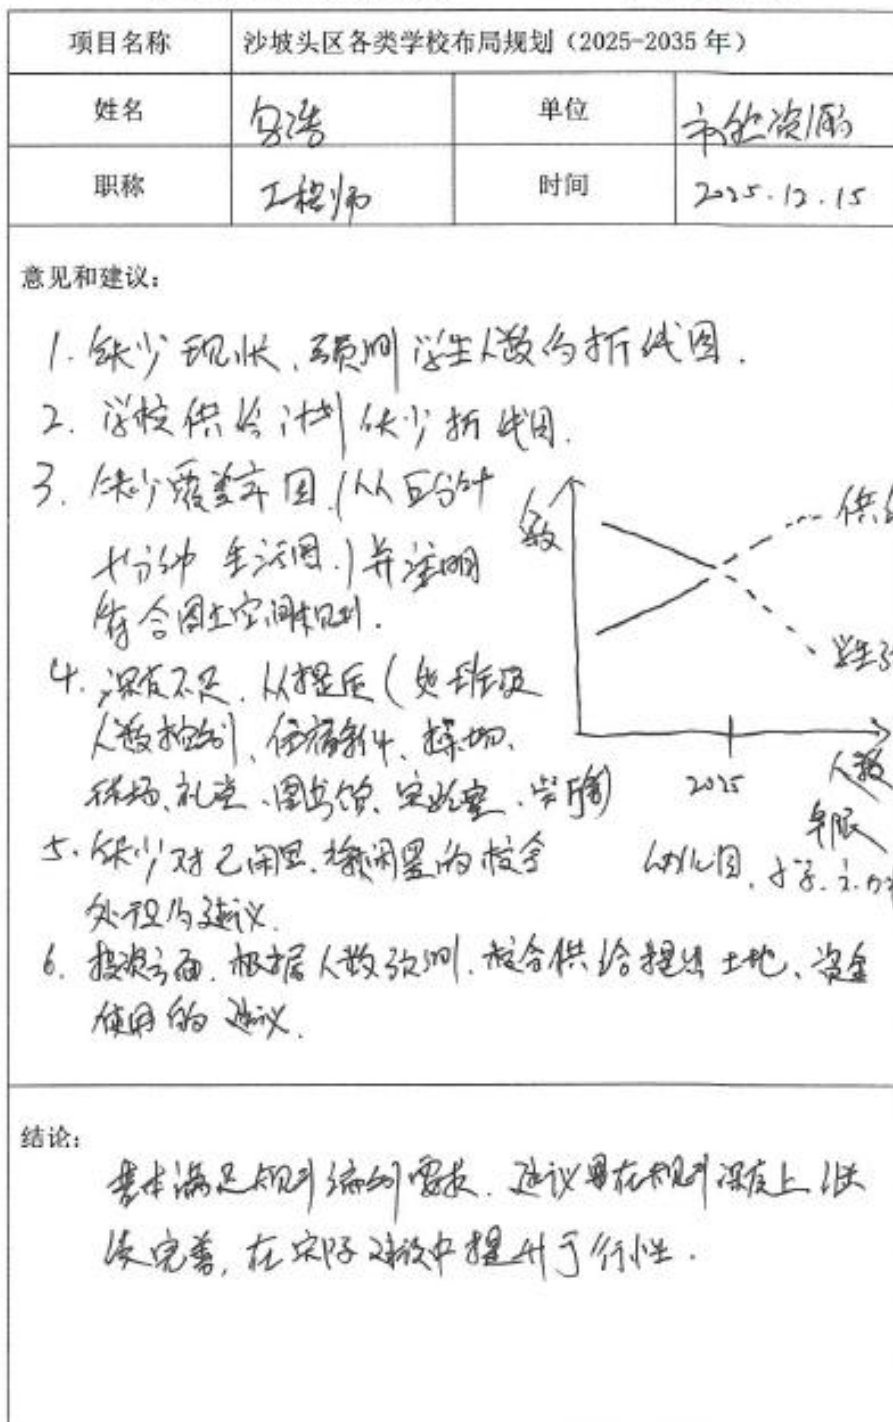 项目名称 沙坡头区各类学校布局规划（2025-2035 年）
姓名 浩 单位 市自然资源局
职称 工程师 时间 2025.12.15
意见和建议：
1. 缺少现状、预测学生人数的折线图.
2. 学校供给计划缺少折线图.
3. 缺少覆盖率图（从五分钟
十分钟生活圈.）并注明
符合国土空间规划.
4. 深度不足，从提质（如班级
人数控制、住宿条件、操场、
体场、礼堂、图书馆、实验室、
5. 缺少对已闲置、将闲置的校舍
处理的建议.
6. 投资方面，根据人数预测，校舍供给提出土地、资金
使用的建议.
人数
供给
学生
2025
人数
年限
幼儿园、小学、初
结论：
基本满足规划编制要求，建议要在规划深度上继
续完善，在实际建设中提升可行性.